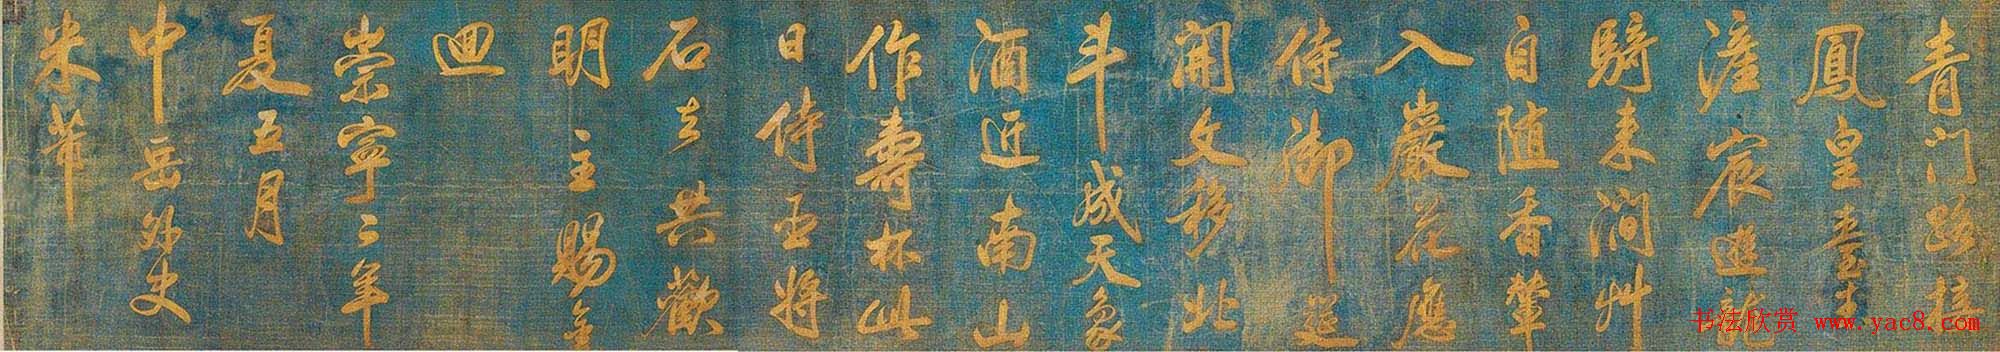 青門路接
鳳皇臺素
滻宸遊龍
騎来澗艸
自随香輦
入巖花應
待御筵
開文移北
斗成天象
酒近南山
作壽杯此
日侍臣將
石去共歡
明主賜金
迴
崇寧二年
夏五月
中岳外史
米芾
书法欣赏 www.yac8.com